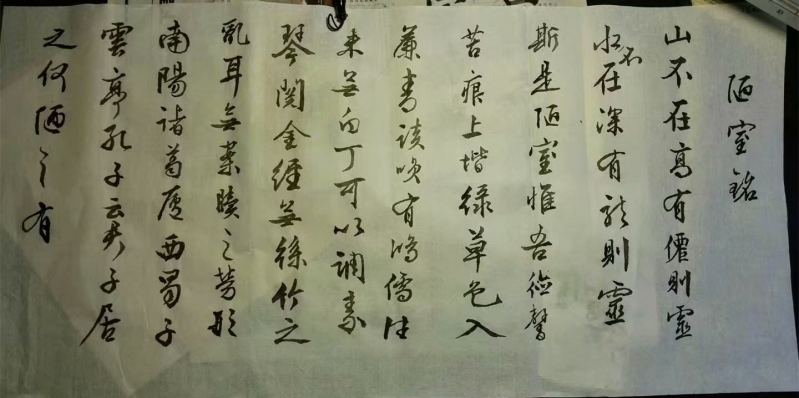 陋室銘
山不在高有僊則靈
水不在深有龍則靈
斯是陋室惟吾德馨
苔痕上堦綠草色入
簾青談咲有鴻儒往
来無白丁可以調素
琴閱金經無絲竹之
亂耳無案牘之勞形
南陽諸葛廬西蜀子
雲亭孔子云君子居
之何陋之有